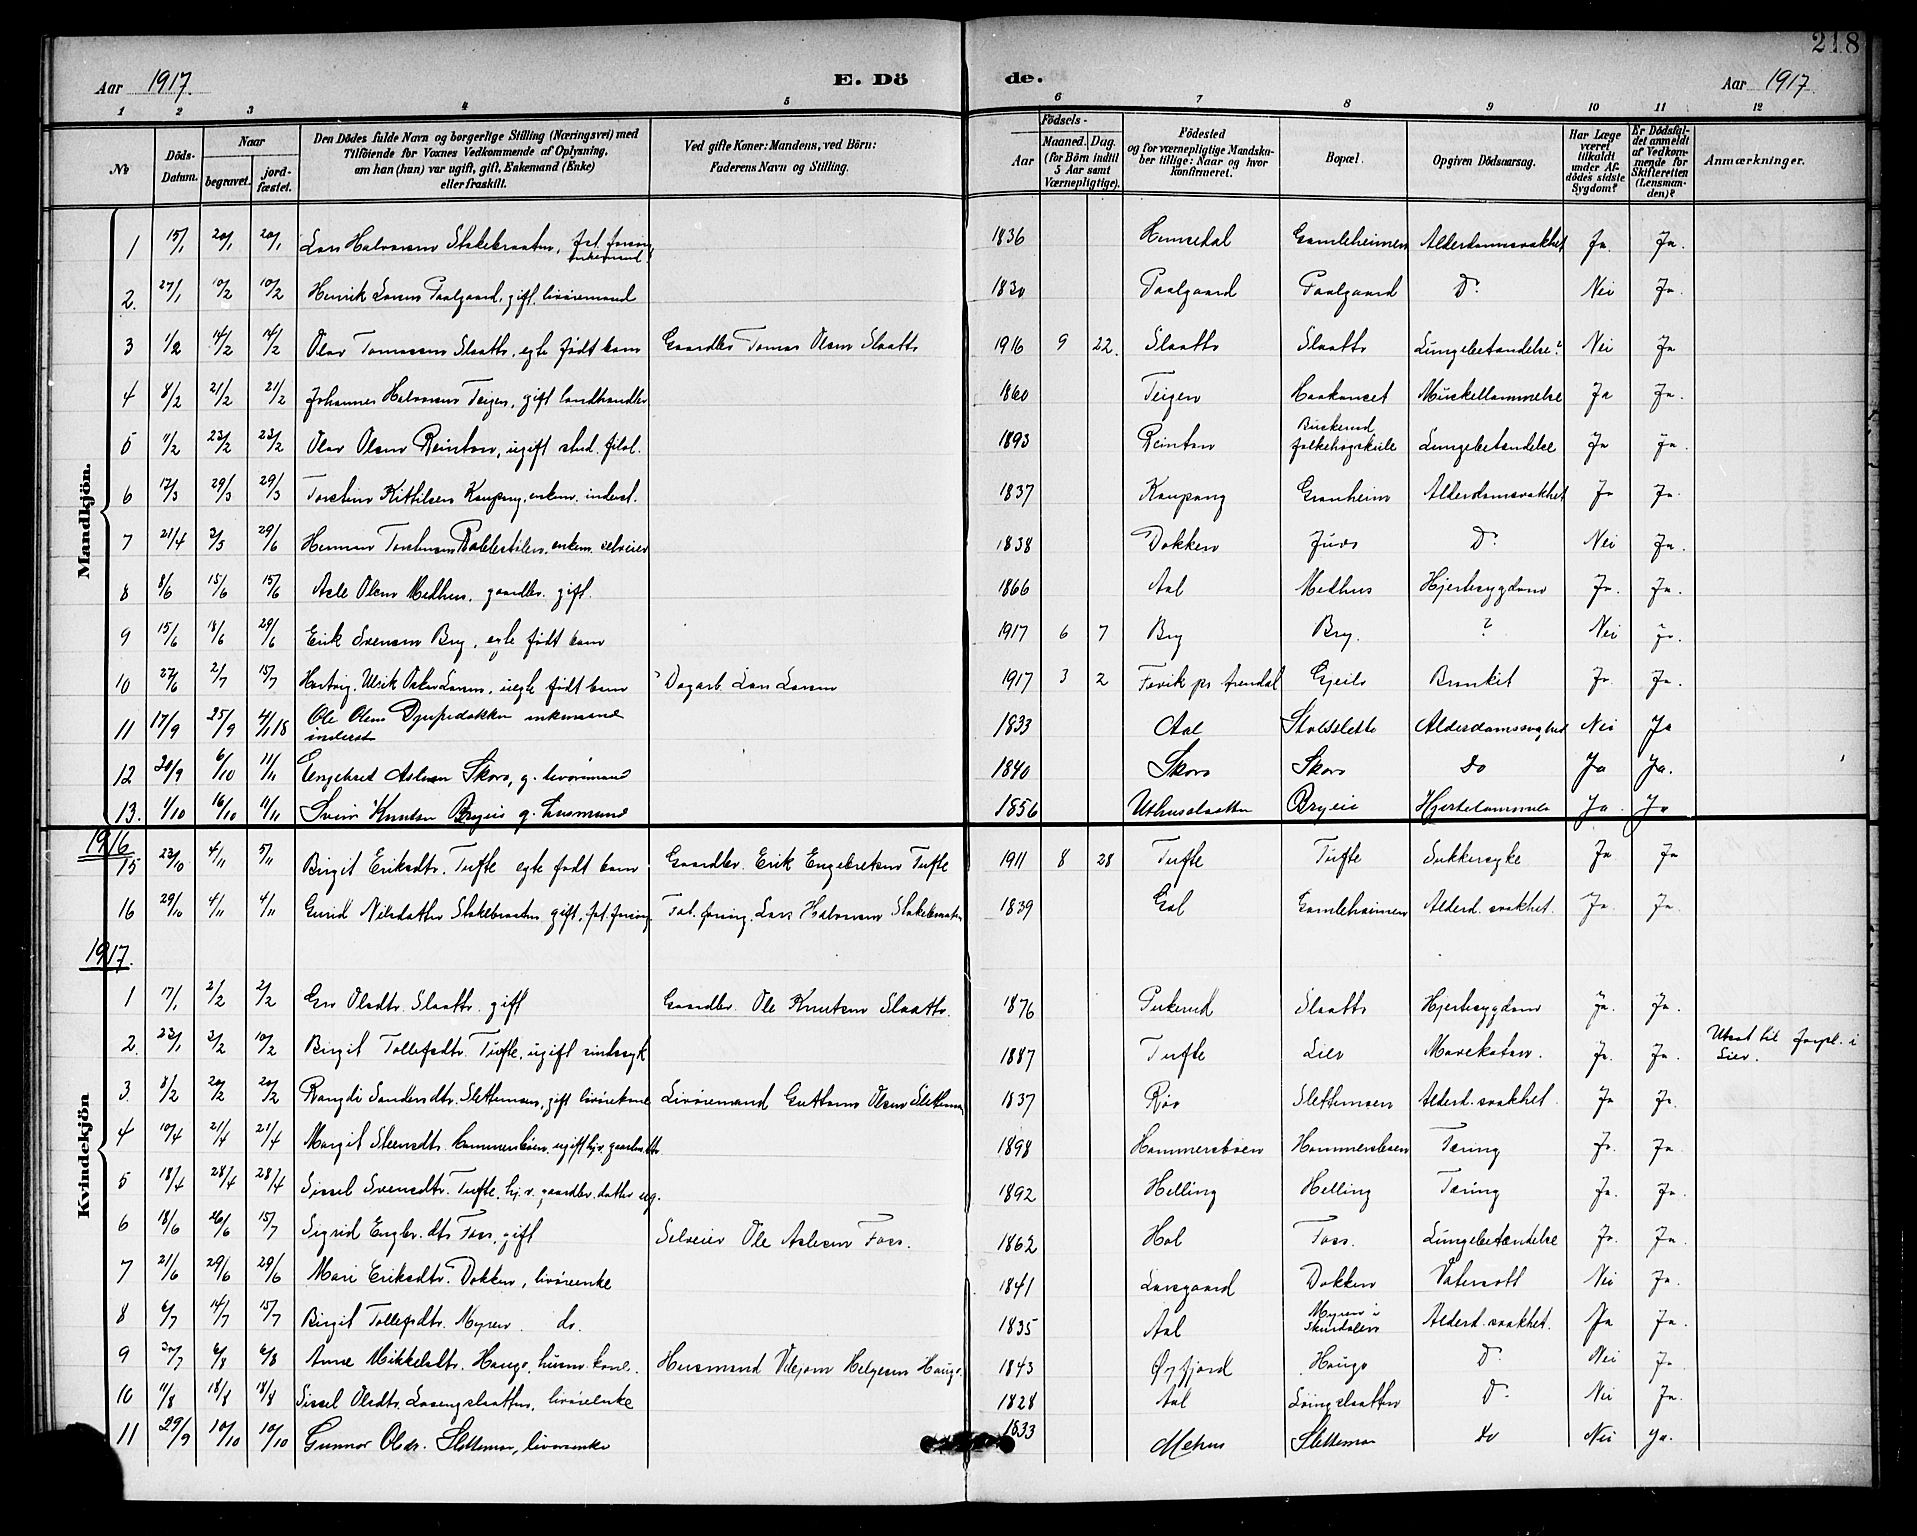 218
Aar 1917. E. Dö de. Aar 1917.
1 2 3 4 5 6 7 8 9 10 11 12
No Döds-Datum. Naar begravet. jordfæstet. Den Dödes fulde Navn og borgerlige Stilling (Næringsvei) med Tilföiende for Voxnes Vedkommende af Oplysning, om han (hun) var ugift, gift, Enkemand (Enke) eller fraskilt. Ved gifte Koner: Mandens, ved Börn: Faderens Navn og Stilling. Aar Födsels- Maaned. Dag. (for Börn indtil 5 Aar samt Værnepligtige). Födested og for værnepligtige Mandskaber tillige: Naar og hvor konfirmeret. Bopæl. Opgiven Dödsaarsag. Har Læge været tilkaldt under Afdödes sidste Sygdom? Er Dödsfaldet anmeldt af Vedkommende for Skifteretten (Lensmanden)? Anmærkninger.
Mandkjön.
1 15/1 20/1 20/1 Lars Halvorsen Stakebraaten, fat. forsörg. enkemand 1836 Hemsedal Gamleheimen Alderdomssvakhet Ja. Ja.
2. 27/1 10/2 10/2 Henrik Larsen Paalgaard, gift, livöremand 1830 Paalgaard Paalgaard D. Nei Ja.
3 1/2 14/2 14/2 Olav Tomassen Slaatto, egte födt barn Gaardbr Tomas Olsen Slaatto 1916 9 22. Slaatto Slaatto Lungebetændelse? Nei Ja
4 8/2 21/2 21/2 Johannes Halvorsen Teigen, gift landhandler 1860 Teigen Haakonset Muskellammelse Ja Ja.
5 11/2 23/2 23/2 Olav Olsen Reinton, ugift stud. filol. 1893 Reinton Buskerud folkehögskule Lungebetændelse Ja Ja.
6 17/3 29/3 29/3 Torstein Kittilsen Kaupang, enkem. inderst. 1837 Kaupang Granheim Alderdomssvakhet Ja Ja.
7 21/4 3/5 29/6 Herman Torstensen Rallestölen, enkem. selveier 1838 Dokken Juvo D. Nei Ja.
8 8/6 15/6 15/6 Asle Olsen Medhus, gaardbr. gift. 1866 Aal Medhus Hjertesygdom Ja. Ja.
9 15/6 18/6 29/6 Erik Svensen Bry, egte födt barn 1917 6 7 Bry Bry. ? Nei Ja.
10 27/6 2/7 15/7 Hartvig Ulrik Oskar Larsen, uegte födt barn Dagarb. Lars Larsen 1917 3 2 Fevik pr Arendal Geilo Bronkit Ja. Ja.
11 17/9 25/9 4/1 18 Ole Olsen Djupedokken enkemand inderst 1833 Aal Stolsslette Alderdomssvaghet Nei Ja
12 20/9 6/10 11/11 Engebret Aslesen Skoro, g. livöremand 1840 Skoro Skoro do Ja Ja.
13. 1/10 16/10 11/11 Svein Knutsen Bryeie g. husmand 1856 Uthusslaatten Bryeie Hjertelammelse Ja. Ja
1916
15 23/10 4/11 5/11 Birgit Eriksdtr. Tufte egte födt barn Gaardbr. Erik Engebretsen Tufte 1911 8 28 Tufte Tufte Sukkersyke Ja Ja
16 29/10 4/11 4/11 Gurid Nilsdatter Stakebraaten, gift, fat. forsörg. Fat. forsörg. Lars Halvorsen Stakebraaten 1839 Gol Gamleheimen Alderd. svakhet. Ja. Ja.
1917.
Kvindekjön
1 17/1 2/2 2/2 Gro Olsdtr. Slaatto. gift Gaardbr. Ole Knutsen Slaatto. 1876 Pukerud Slaatto Hjertesygdom Ja. Ja.
2. 23/1 3/2 10/2 Birgit Tollefsdtr. Tufte, ugift sindssyk 1887 Tufte Lier Mavekatar. Ja. Ja. Utsat til forpl. i Lier.
3. 8/2 20/2 20/2 Rangdi Sandersdtr. Slettemoen, gift livörekone Livöremand Guttorm Olsen Slettemoen 1837 Röo Slettemoen Alderd. svakhet. Ja Ja.
4 10/4 21/4 21/4 Margit Steensdtr. Hammersböen ugift hj.v. gaardm.dtr. 1898 Hammersböen Hammersböen Tæring Ja. Ja
5 18/4 28/4 28/4 Sissel Svensdtr. Tufte, hj.v. gaardbr. datter ug. 1892 Helling Helling Tæring Ja. Ja.
6 18/6 26/6 15/7 Sigrid Engbr.dtr Foss, gift Selveier Ole Aslesen Foss. 1862 Hol Foss. Lungebetændelse Ja. Ja.
7 21/6 29/6 29/6 Mari Eriksdtr. Dokken, livöreenke 1841 Larsgaard Dokken Vatersott Nei Ja.
8 6/7 14/7 15/7 Birgit Tollefsdtr. Myren. do. 1835 Aal Myren i Skurdalen Alderd. svakhet. Ja Ja.
9 30/7 6/8 6/8 Anne Mikkelsdtr. Haugo, husm. kone. Husmand Vebjörn Helgesen Haugo. 1843 Öyfjord Haugo D. Nei Ja
10 11/8 18/8 18/8 Sissel Olsdtr. Lövingslaatten, livöreenke 1828 Aal Lövingslaatten D. Nei Ja.
11 29/9 10/10 10/10 Gunnor Olsdr. Slettemo, livöreenke 1833 Mehus Slettemo do Nei Ja.